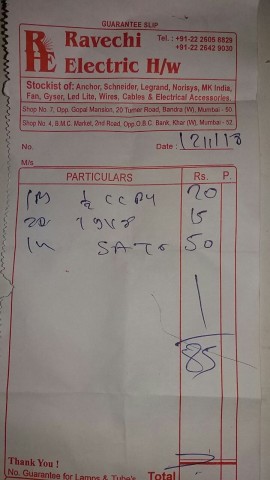 GUARANTEE SLIP
RHE Ravechi Electric H/w
Tel. : +91-22 2605 8829
+91-22 2642 9030
Stockist of: Anchor, Schneider, Legrand, Norisys, MK India,
Fan, Gyser, Led Lite, Wires, Cables & Electrical Accessories.
Shop No. 7, Opp. Gopal Mansion, 20 Turner Road, Bandra (W), Mumbai - 50.
Shop No. 4, B.M.C. Market, 2nd Road, Opp. O.B.C. Bank, Khar (W), Mumbai - 52.
No. Date :
M/s
PARTICULARS Rs. P.
20
15
50
85
Thank You !
No. Guarantee for Lamps & Tube's Total